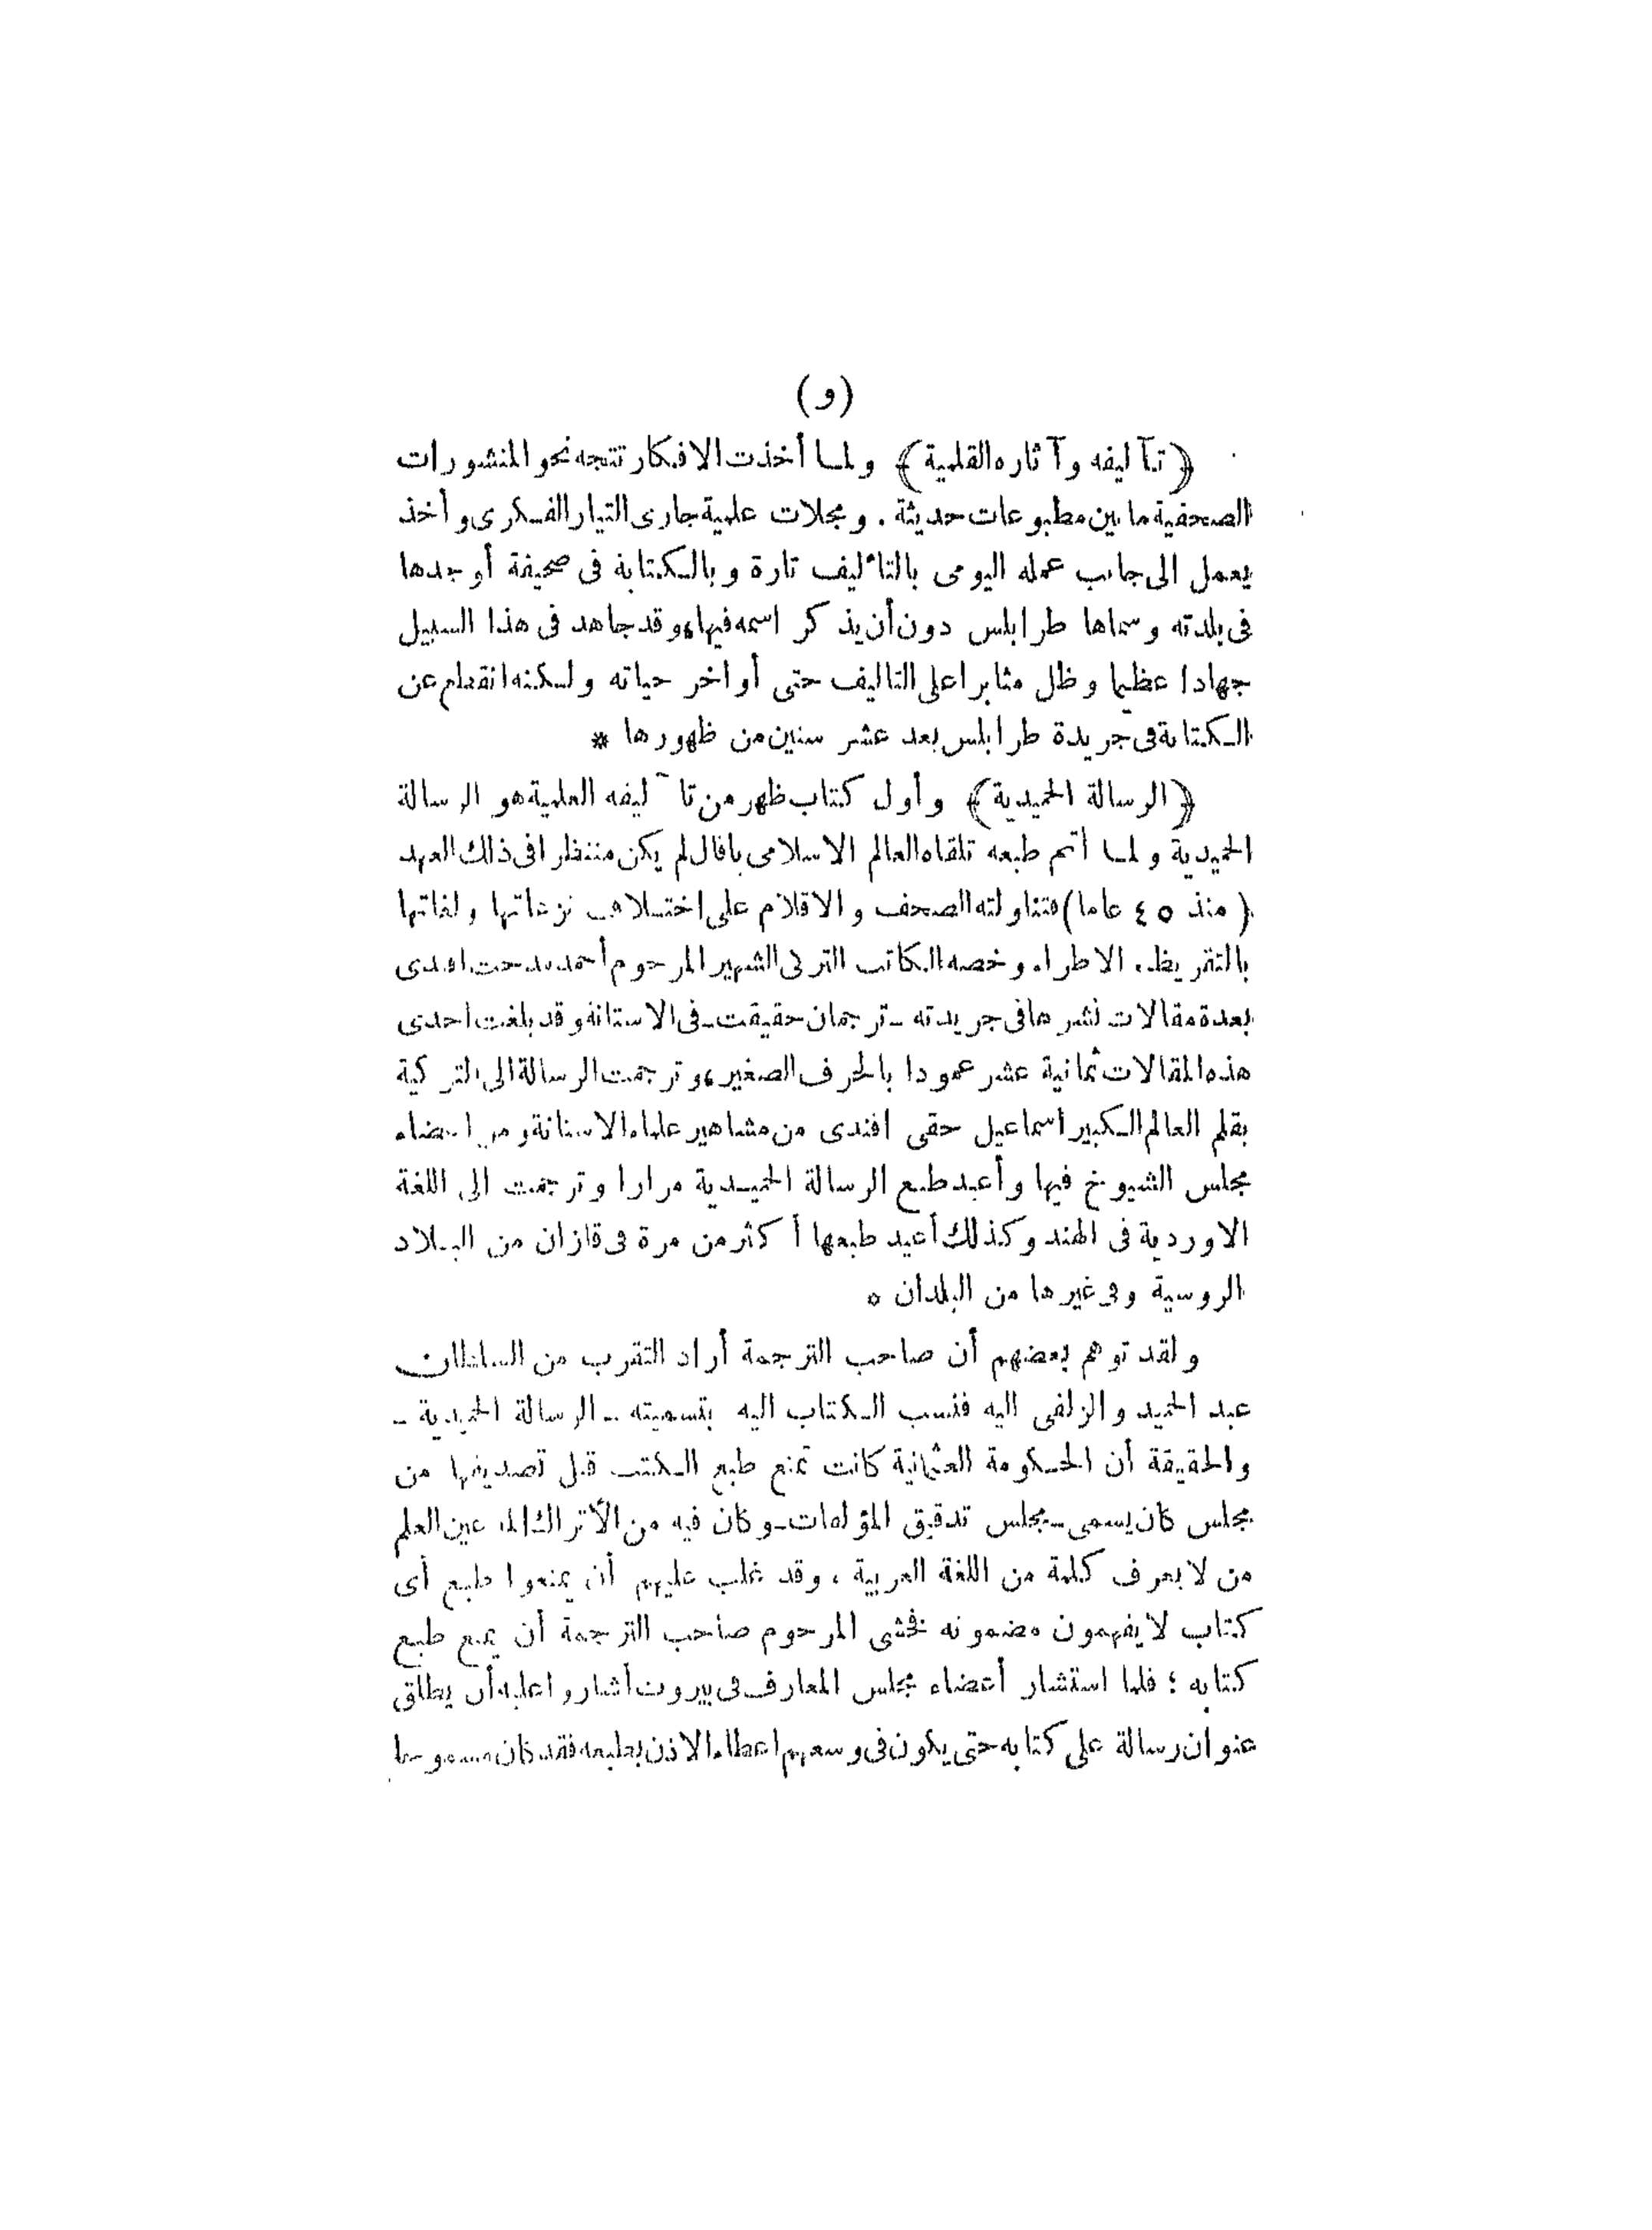 (و)
﴿ تآليفه وآثاره القلمية ﴾ ولما أخذت الافكار تتجه نحو المنشورات
الصحفية ما بين مطبوعات حديثة . ومجلات علمية جارى التيار الفكرى وأخذ
يعمل الى جانب عمله اليومى بالتأليف تارة وبالكتابة فى صحيفة أوجدها
فى بلدته وسماها طرابلس دون أن يذكر اسمه فيها، وقد جاهد فى هذا السبيل
جهادا عظيما وظل مثابرا على التاليف حتى أواخر حياته ولكنه انقطع عن
الكتابة فى جريدة طرابلس بعد عشر سنين من ظهورها *
﴿ الرسالة الحميدية ﴾ وأول كتاب ظهر من تآليفه العلمية هو الرسالة
الحميدية ولما أتم طبعه تلقاه العالم الاسلامى باقبال لم يكن منتظرا فى ذلك العهد
( منذ ٤٥ عاما ) فتناولته الصحف والاقلام على اختلاف نزعاتها ولغاتها
بالتقريظ. الاطراء وخصه الكاتب التركى الشهير المرحوم أحمد مدحت افندى
بعدة مقالات نشرها فى جريدته ـ ترجمان حقيقت ـ فى الاستانة وقد بلغت احدى
هذه المقالات ثمانية عشر عمودا بالحرف الصغير، وترجمت الرسالة الى التركية
بقلم العالم الكبير اسماعيل حقى افندى من مشاهير علماء الاستانة ومن اعضاء
مجلس الشيوخ فيها وأعيد طبع الرسالة الحميدية مرارا وترجمت الى اللغة
الاوردية فى الهند وكذلك أعيد طبعها أكثر من مرة فى قازان من البلاد
الروسية وفى غيرها من البلدان ٥
ولقد توهم بعضهم أن صاحب الترجمة أراد التقرب من السلطان
عبد الحميد والزلفى اليه فنسب الكتاب اليه بتسميته ـ الرسالة الحميدية ـ
والحقيقة أن الحكومة العثمانية كانت تمنع طبع الكتب قبل تصديقها من
مجلس كان يسمى ـ مجلس تدقيق المؤلفات ـ وكان فيه من الأتراك المدعين العلم
من لا يعرف كلمة من اللغة العربية ، وقد غلب عليهم أن يمنعوا طبع أى
كتاب لا يفهمون مضمونه فخشى المرحوم صاحب الترجمة أن يمنع طبع
كتابه ؛ فلما استشار أعضاء مجلس المعارف فى بيروت أشاروا عليه أن يطلق
عنوان رسالة على كتابه حتى يكون فى وسعهم اعطاء الاذن بطبعه فقد كان مسموحا